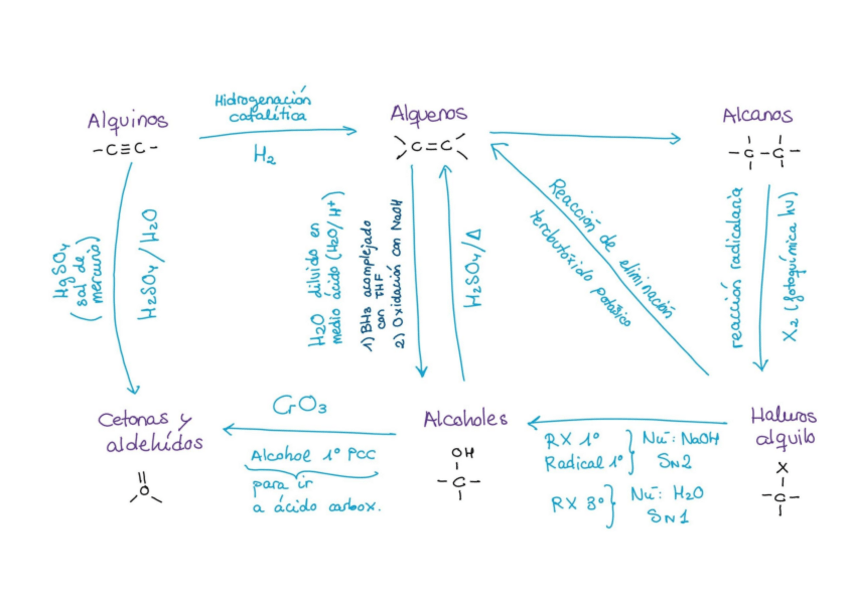 Hidrogenación
catalítica
H₂
Alquinos
-C≡C-
Alquenos
C=C
Alcanos
-C-C-
HgSO₄
(sal de
mercurio)
H₂SO₄/H₂O
H₂O diluido en
medio ácido (H₂O/H⁺)
1) BH₃ acomplejado
con THF
2) Oxidación con NaOH
H₂SO₄/Δ
Reacción de eliminación
tercbutóxido potásico
reacción radicalaria
X₂ (fotoquímica hν)
Cetonas y
aldehídos
O
CrO₃
Alcohol 1º PCC
para ir
a ácido carbox.
Alcoholes
OH
-C-
RX 1º
Radical 1º
Nu⁻: NaOH
SN2
RX 3º
Nu⁻: H₂O
SN1
Haluros
alquilo
X
-C-